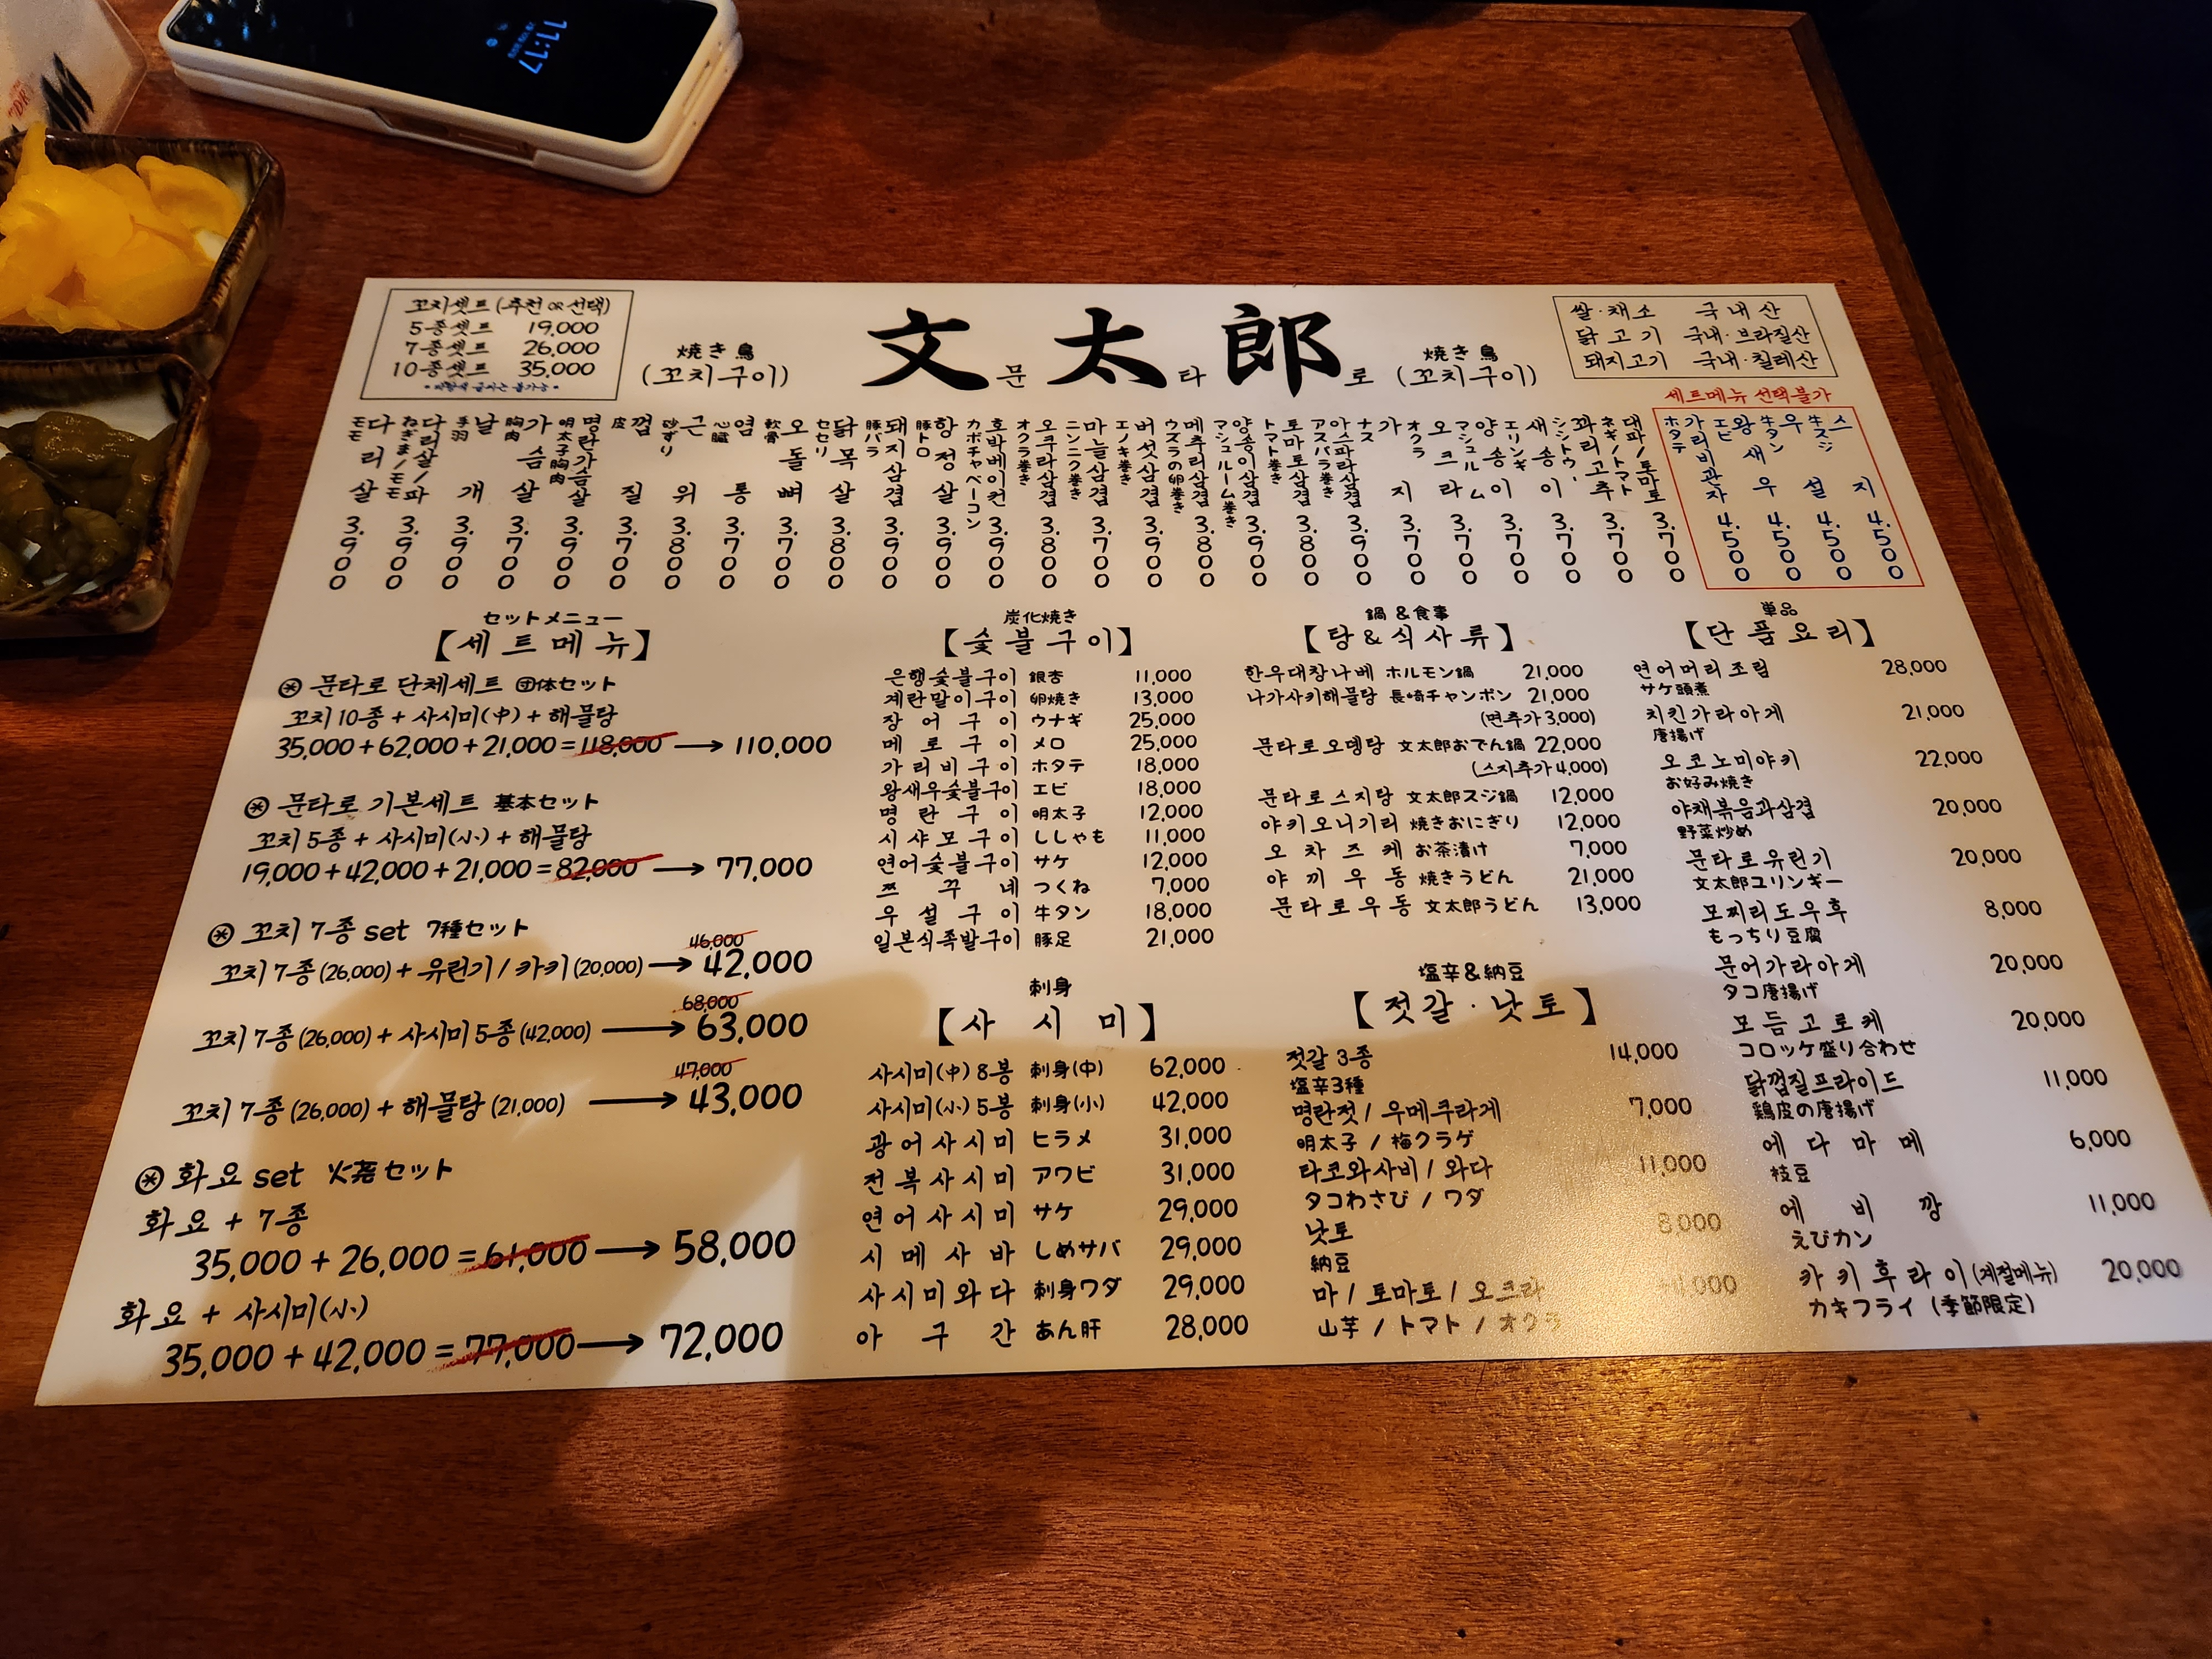 11:17
꼬치셋트 (추천 OR 선택)
5종셋트 19,000
7종셋트 26,000
10종셋트 35,000
焼き鳥
(꼬치구이)
文문太타郎로
焼き鳥
(꼬치구이)
쌀·채소 국내산
닭고기 국내·브라질산
돼지고기 국내·칠레산
세트메뉴 선택불가
다리살 モモ 3.900
다리살/파 ねぎま/モモ 3.900
날개 手羽 3.900
가슴살 胸肉 3.700
명란가슴살 明太子胸肉 3.900
껍질 皮 3.700
근위 砂ずり 3.800
염통 心臓 3.700
오돌뼈 軟骨 3.700
닭목살 セセリ 3.800
돼지삼겹 豚バラ 3.900
항정살 豚トロ 3.900
호박베이컨 カボチャベーコン 3.900
오쿠라삼겹 オクラ巻き 3.800
마늘삼겹 ニンニク巻き 3.700
버섯삼겹 エノキ巻き 3.900
메추리삼겹 ウズラの卵巻き 3.800
양송이삼겹 マシュルーム巻き 3.900
토마토삼겹 トマト巻き 3.800
아스파라삼겹 アスパラ巻き 3.900
가지 ナス 3.700
오크라 オクラ 3.700
양송이 マシュルム 3.700
새송이 エリンギ 3.700
꽈리고추 シシトウ 3.700
대파/토마토 ネギ/トマト 3.700
가리비관자 ホタテ 4.500
왕새우 エビ 4.500
우설 牛タン 4.500
스지 牛スジ 4.500
セットメニュー
【세트메뉴】
㊛ 문타로 단체세트 団体セット
꼬치10종 + 사시미(中) + 해물탕
35,000+62,000+21,000=118,000 → 110,000
문타로 기본세트 基本セット
꼬치5종 + 사시미(小) + 해물탕
19,000+42,000+21,000=82,000 → 77,000
꼬치 7종 set 7種セット
46,000
꼬치 7종 (26,000) + 유린기 / 카키 (20,000) → 42,000
68,000
꼬치 7종 (26,000) + 사시미 5종 (42,000) → 63,000
47,000
꼬치 7종 (26,000) + 해물탕 (21,000) → 43,000
화요 set 火尭セット
화요 + 7종
35,000 + 26,000 = 61,000 → 58,000
화요 + 사시미(小)
35,000 + 42,000 = 77,000 → 72,000
炭化焼き
【숯불구이】
은행숯불구이 銀杏 11,000
계란말이구이 卵焼き 13,000
장어구이 ウナギ 25,000
메로구이 メロ 25,000
가리비구이 ホタテ 18,000
왕새우숯불구이 エビ 18,000
명란구이 明太子 12,000
시샤모구이 ししゃも 11,000
연어숯불구이 サケ 12,000
쯔꾸네 つくね 7,000
우설구이 牛タン 18,000
일본식족발구이 豚足 21,000
刺身
【사시미】
사시미(中) 8봉 刺身(中) 62,000
사시미(小) 5봉 刺身(小) 42,000
광어사시미 ヒラメ 31,000
전복사시미 アワビ 31,000
연어사시미 サケ 29,000
시메사바 しめサバ 29,000
사시미와다 刺身ワダ 29,000
아구간 あん肝 28,000
鍋&食事
【탕&식사류】
한우대창나베 ホルモン鍋 21,000
나가사키해물탕 長崎チャンポン 21,000
(면추가 3,000)
문타로오뎅탕 文太郎おでん鍋 22,000
(스지추가 4,000)
문타로스지탕 文太郎スジ鍋 12,000
야키오니기리 焼きおにぎり 12,000
오차즈케 お茶漬け 7,000
야끼우동 焼きうどん 21,000
문타로우동 文太郎うどん 13,000
塩辛&納豆
【젓갈·낫토】
젓갈 3종 14,000
塩辛3種
명란젓 / 우메쿠라게 7,000
明太子 / 梅クラゲ
타코와사비 / 와다 11,000
タコわさび / ワダ
낫토 8,000
納豆
마 / 토마토 / 오크라 4,000
山芋 / トマト / オクラ
単品
【단품요리】
연어머리조림 28,000
サケ頭煮
치킨가라아게 21,000
唐揚げ
오코노미야키 22,000
お好み焼き
야채볶음과삼겹 20,000
野菜炒め
문타로유린기 20,000
文太郎ユリンギー
모찌리도우후 8,000
もっちり豆腐
문어가라아게 20,000
タコ唐揚げ
모듬고로케 20,000
コロッケ盛り合わせ
닭껍질프라이드 11,000
鶏皮の唐揚げ
에다마메 6,000
枝豆
에비깡 11,000
えびカン
카키후라이 (계절메뉴) 20,000
カキフライ (季節限定)